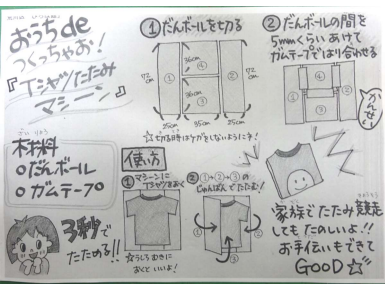 おうちde
つくっちゃお!
『Tシャツたたみ
マシーン』
ざいりょう
材料
○だんボール
○ガムテープ
3秒で
たためる!!
①だんボールを切る
36cm
36cm
72cm
72cm
①
④
③
②
25cm
35cm
25cm
☆切る時はケガをしないようにネ!
②だんボールの間を
5mmくらいあけて
ガムテープではり合わせる
④
①
③
②
かんせい
使い方
①マシーンに
Tシャツをおく
☆うしろむきに
おくといいよ!
②①→②→③の
じゅんばんでたたむ!
①
②
③
家族でたたみ競走
してもたのしいよ!!
お手伝いもできて
GOOD☆